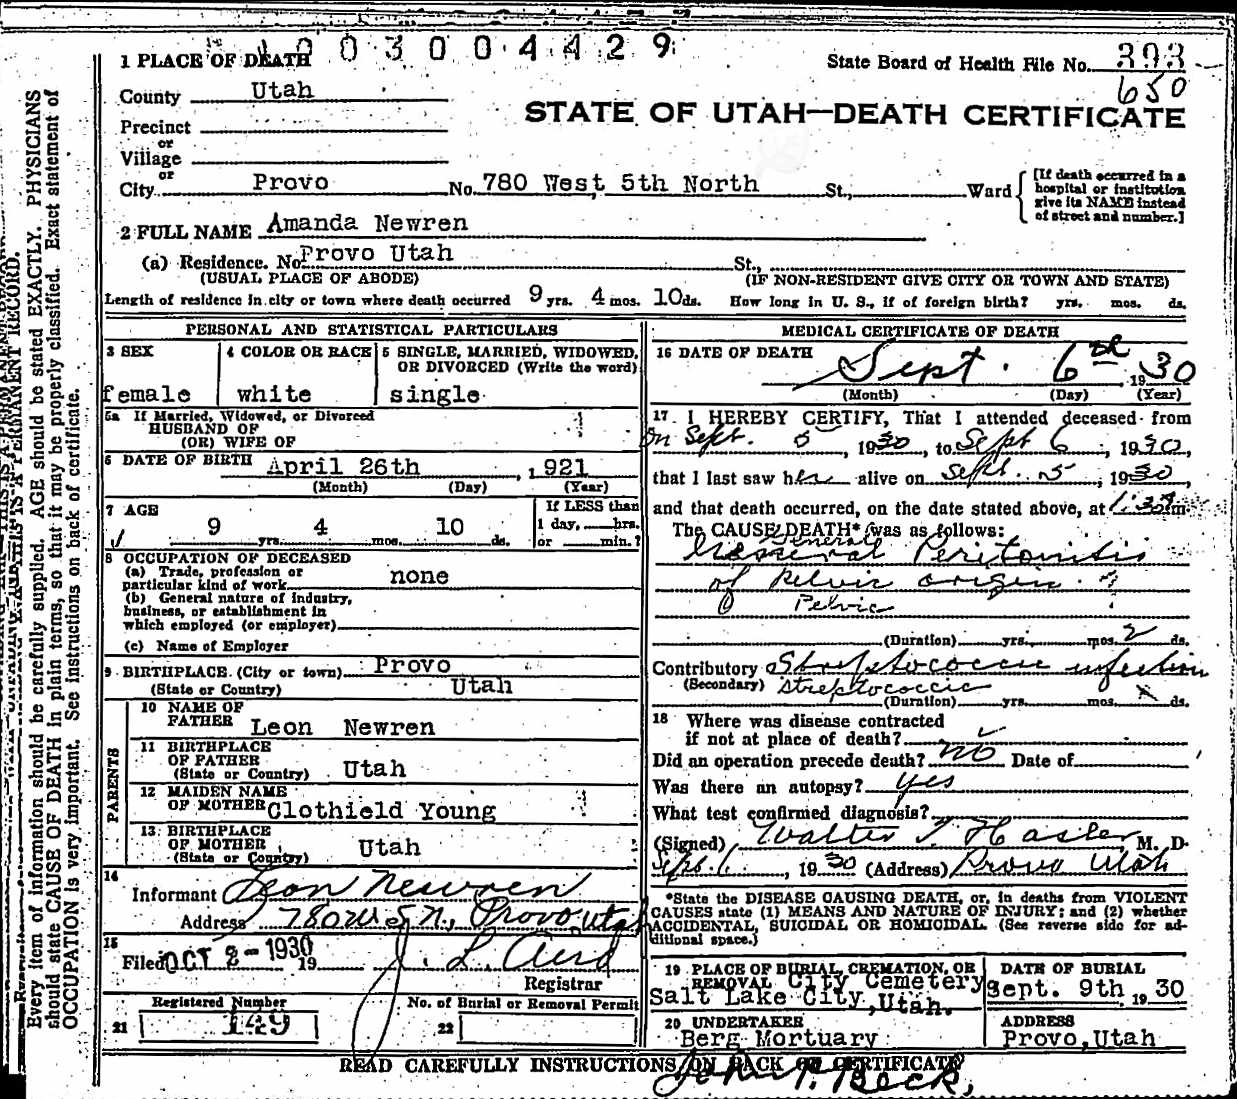 1003004429
1 PLACE OF DEATH
State Board of Health File No. 393
650
County Utah
STATE OF UTAH—DEATH CERTIFICATE
Precinct
or
Village
or
City Provo No. 780 West, 5th North St., Ward
[If death occurred in a hospital or institution give its NAME instead of street and number.]
2 FULL NAME Amanda Newren
(a) Residence. No. Provo Utah St.,
(USUAL PLACE OF ABODE) (IF NON-RESIDENT GIVE CITY OR TOWN AND STATE)
Length of residence in city or town where death occurred 9 yrs. 4 mos. 10 ds. How long in U. S., if of foreign birth? yrs. mos. ds.
PERSONAL AND STATISTICAL PARTICULARS
3 SEX female
4 COLOR OR RACE white
5 SINGLE, MARRIED, WIDOWED, OR DIVORCED (Write the word) single
5a If Married, Widowed, or Divorced
HUSBAND OF
(OR) WIFE OF
6 DATE OF BIRTH April 26th, 1921
(Month) (Day) (Year)
7 AGE 9 yrs. 4 mos. 10 ds.
If LESS than
1 day, hrs.
or min.?
8 OCCUPATION OF DECEASED
(a) Trade, profession or
particular kind of work none
(b) General nature of industry,
business, or establishment in
which employed (or employer)
(c) Name of Employer
9 BIRTHPLACE (City or town) Provo
(State or Country) Utah
PARENTS
10 NAME OF
FATHER Leon Newren
11 BIRTHPLACE
OF FATHER
(State or Country) Utah
12 MAIDEN NAME
OF MOTHER Clothield Young
13 BIRTHPLACE
OF MOTHER
(State or Country) Utah
14
Informant Leon Newren
Address 780 W 5 N., Provo, Utah
15
Filed OCT 2 - 1930 19
Registrar
Registered Number
21 149
No. of Burial or Removal Permit
22
MEDICAL CERTIFICATE OF DEATH
16 DATE OF DEATH Sept. 6th 1930
(Month) (Day) (Year)
17 I HEREBY CERTIFY, That I attended deceased from
on Sept. 5, 1930, to Sept 6, 1930,
that I last saw her alive on Sept. 5, 1930
and that death occurred, on the date stated above, at m.
The CAUSE DEATH* was as follows:
General
General Peritonitis
of pelvic origin
Pelvic
(Duration) yrs. mos. 2 ds.
Contributory Streptococcic infection
(Secondary) streptococcic
(Duration) yrs. mos. ds.
18 Where was disease contracted
if not at place of death?
Did an operation precede death? no Date of
Was there an autopsy? yes
What test confirmed diagnosis?
(Signed) Walter T. Hasler M. D.
Sept. 6, 1930 (Address) Provo Utah
*State the DISEASE CAUSING DEATH, or, in deaths from VIOLENT
CAUSES state (1) MEANS AND NATURE OF INJURY; and (2) whether
ACCIDENTAL, SUICIDAL OR HOMICIDAL. (See reverse side for ad-
ditional space.)
19 PLACE OF BURIAL, CREMATION, OR
REMOVAL City Cemetery
Salt Lake City, Utah.
DATE OF BURIAL
Sept. 9th 1930
20 UNDERTAKER
Berg Mortuary
ADDRESS
Provo, Utah
READ CAREFULLY INSTRUCTIONS ON BACK OF CERTIFICATE
John P. Beck,
Every item of information should be carefully supplied. AGE should be stated EXACTLY. PHYSICIANS
should state CAUSE OF DEATH in plain terms, so that it may be properly classified. Exact statement of
OCCUPATION is very important. See instructions on back of certificate.